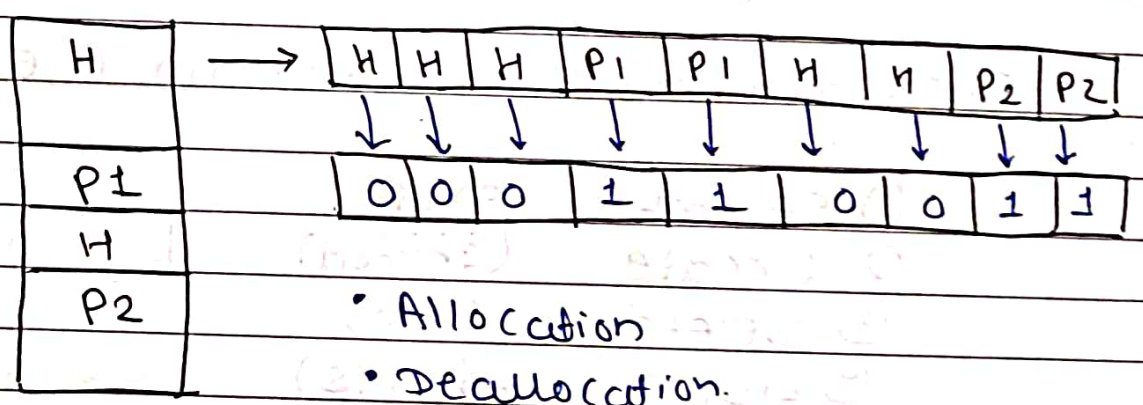 H → H H H P1 P1 H H P2 P2
P1 0 0 0 1 1 0 0 1 1
H
P2 • Allocation
• Deallocation.